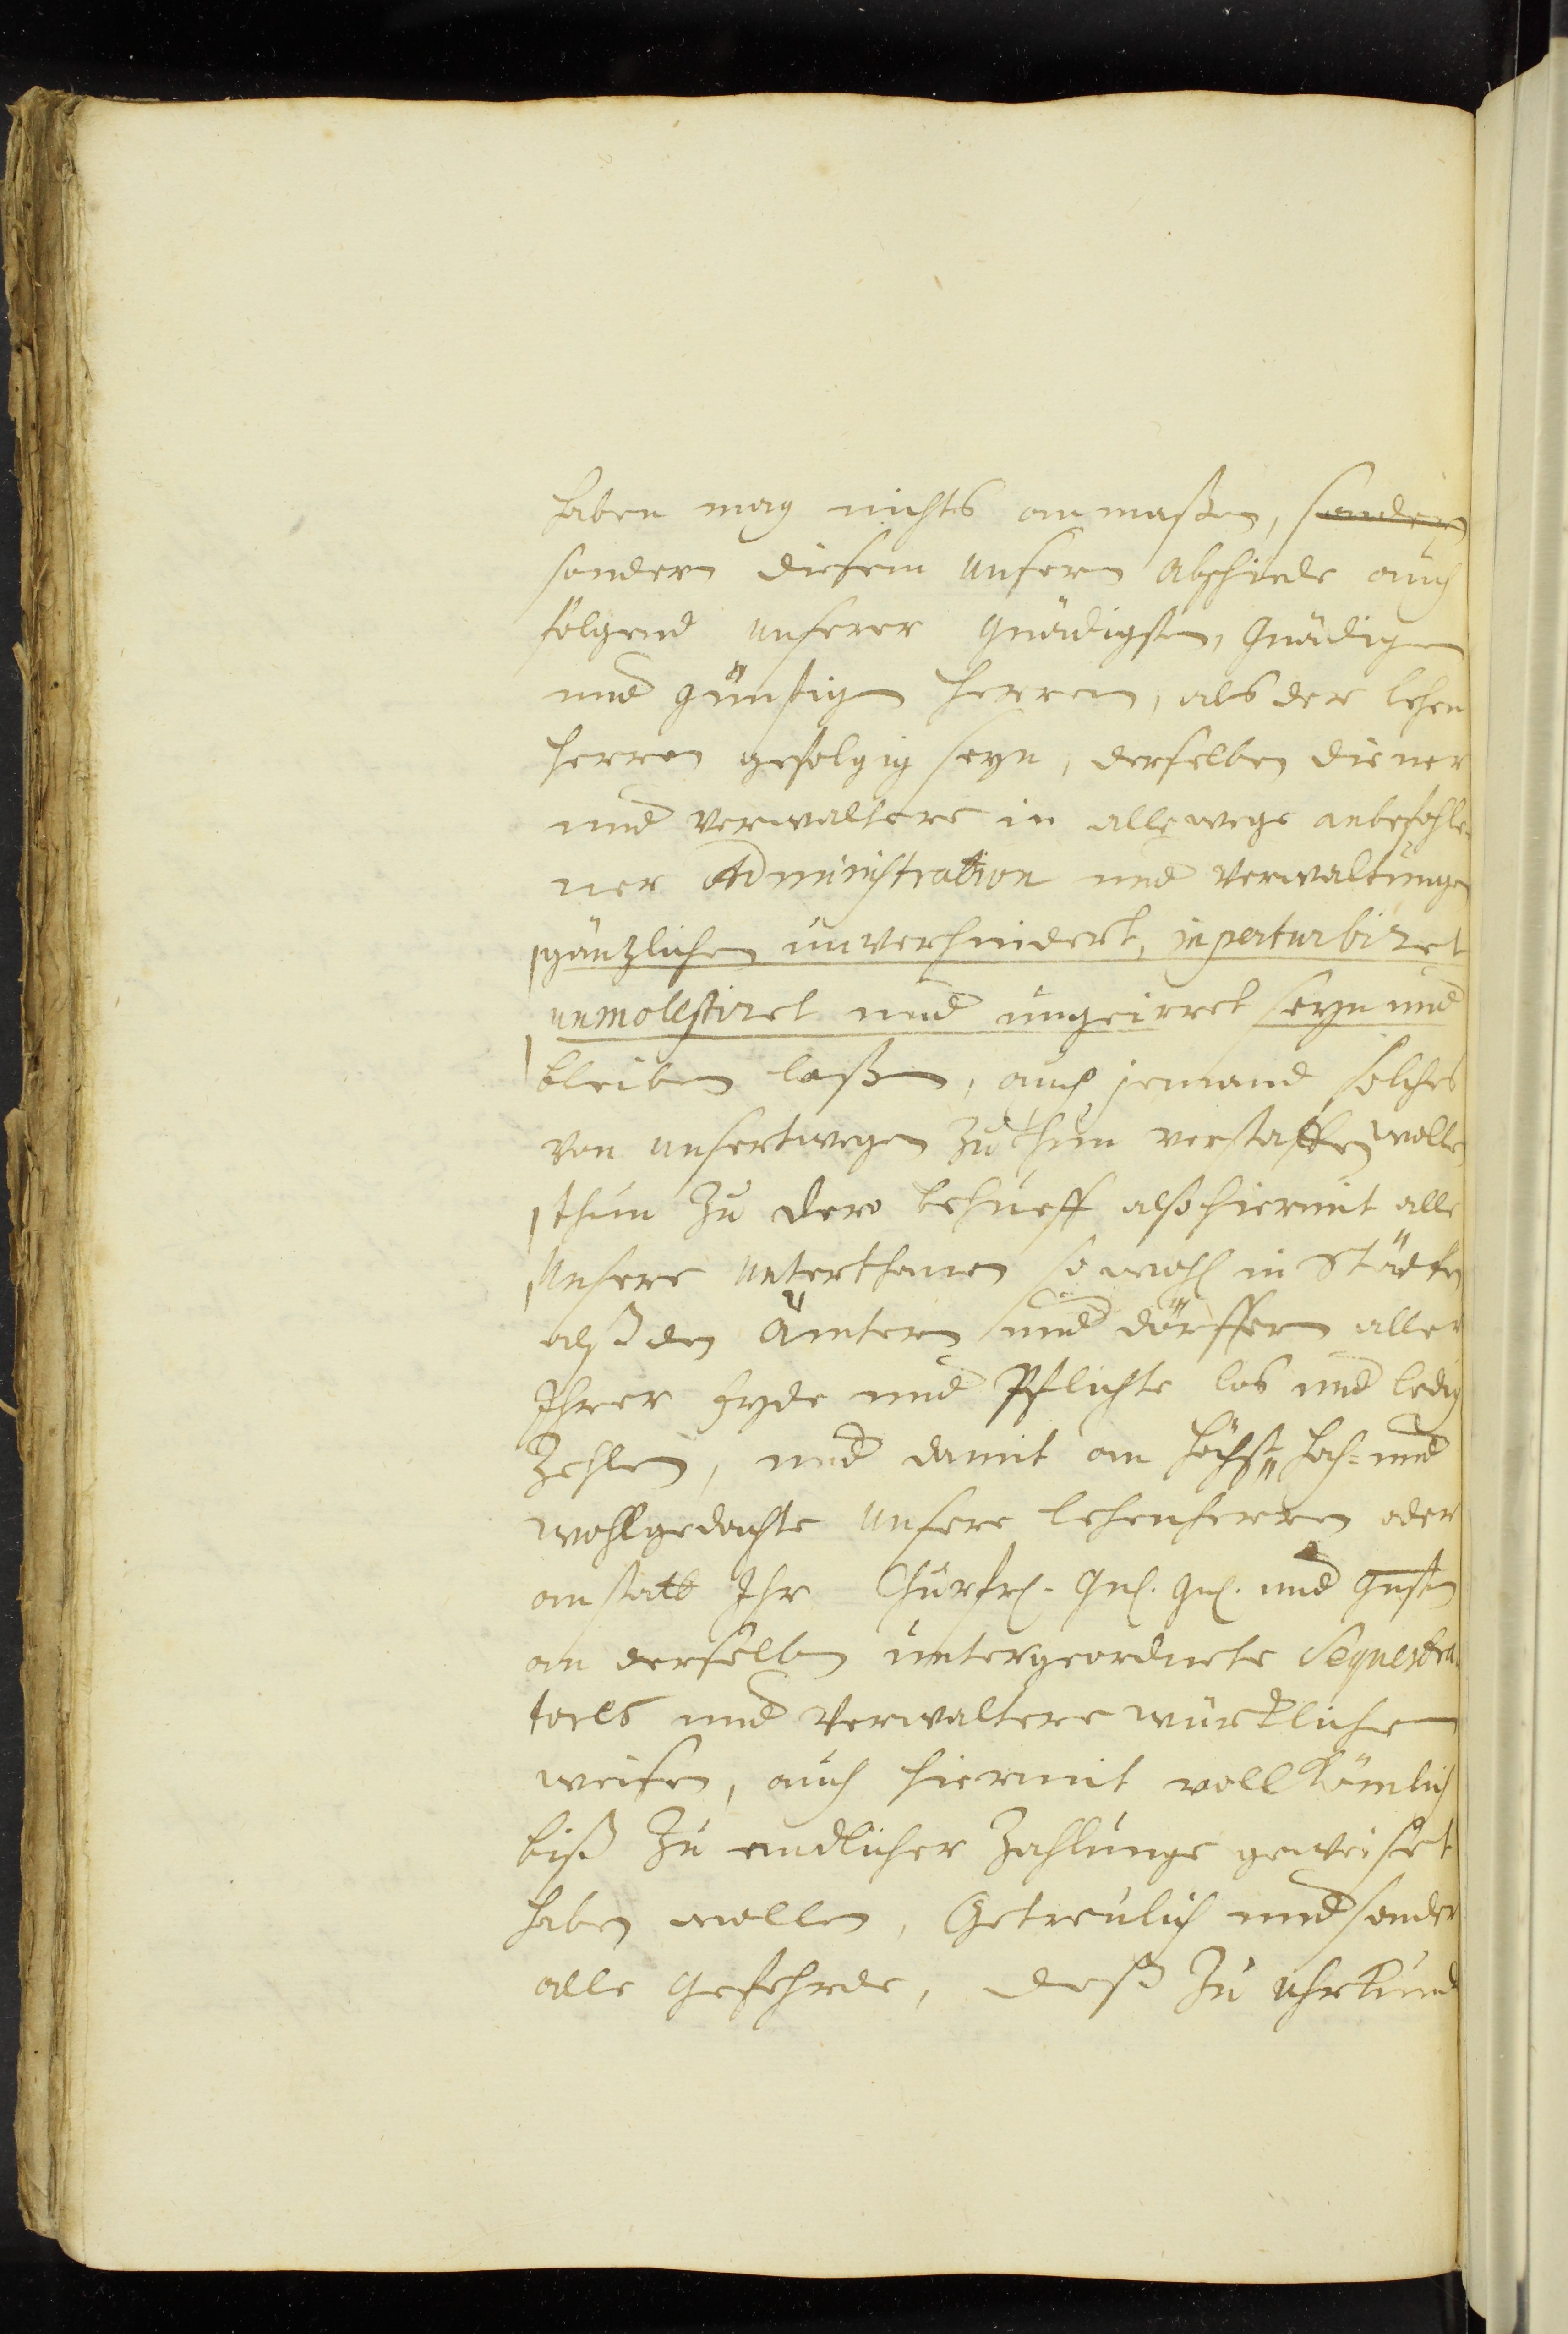 haben mag nichts anmaßen, sondern
sondern diesem unserm Abschiede auch
folgend unserer Gnädigsten, Gnädigen
und günstigen Herren, als der Lehen
herren gefolgig seyn, derselben diener
und verwaltere in allewege anbefohle-
ner Administration und Verwaltunge
gäntzlichen unverhindert, inperturbiret
unmolestiret und ungeirret seyn und
bleiben laßen, auch jemand solches
von unsertwegen zu thun verstatten wollen
thun zu dero behueff alß hiermit alle
Unsere Unterthanen so wohl in Städten
alß den Ämtern und dörffern aller
Ihrer Eyde und Pflichte los und ledig
Zehlen, und damit an höchst, hoch- und
wohlgedachte unsere Lehenherren oder
anstatt Ihr Churfrl. Gnl. Gnl. und Gnsten
an derselben untergeordnete Sequestra-
tores und Verwaltere würcklichen
weisen, auch hiermit vollkömlich
biß zu endlicher Zahlunge geweiset
haben wollen, Getreulich und sonder
alle Gefehrde, deß zu Uhrkund